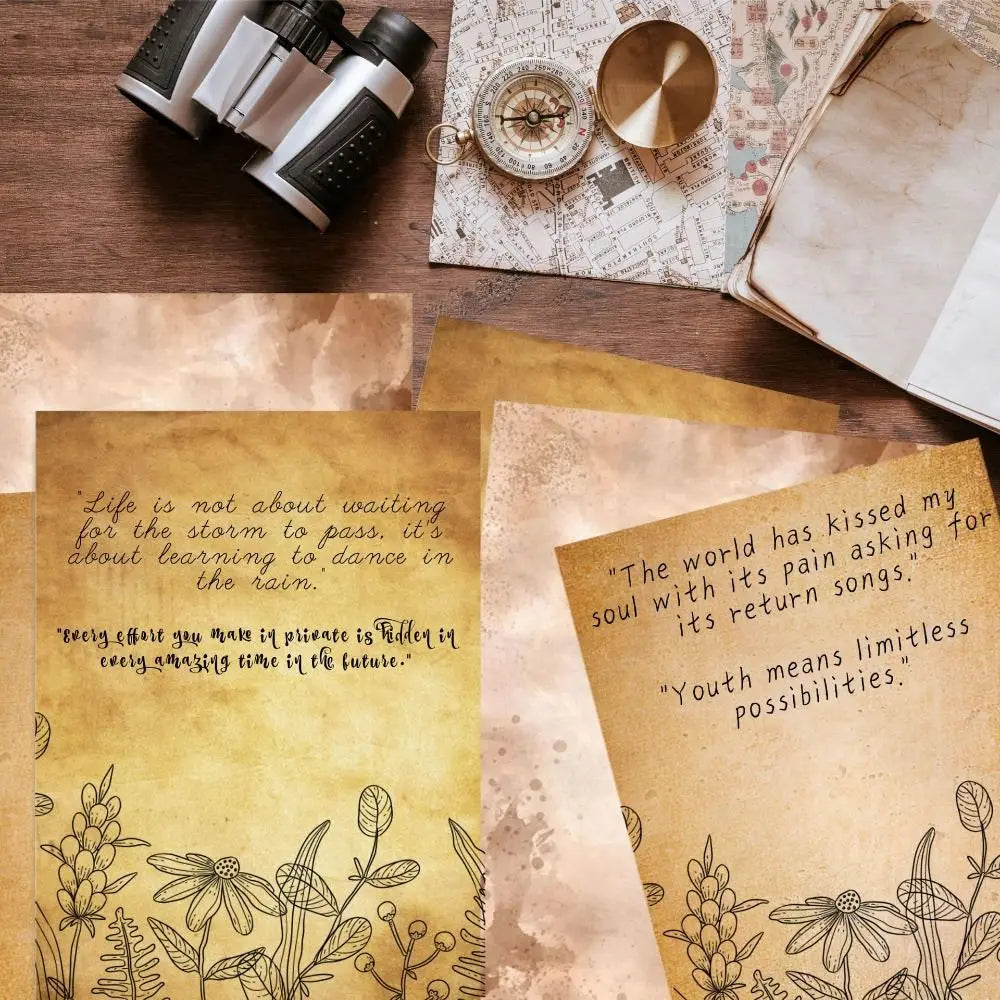 "Life is not about waiting
for the storm to pass, it's
about learning to dance in
the rain."
"Every effort you make in private is hidden in
every amazing time in the future."
"The world has kissed my
soul with its pain asking for
its return songs."
"Youth means limitless
possibilities."